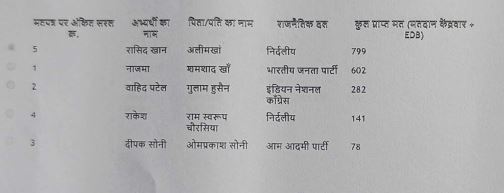 मतपत्र पर अंकित सरल क्र. अभ्यर्थी का नाम पिता/पति का नाम राजनैतिक दल कुल प्राप्त मत (मतदान केंद्रवार + EDB)
5 रासिद खान अलीमखां निर्दलीय 799
1 नाजमा शमशाद खाँ भारतीय जनता पार्टी 602
2 वाहिद पटेल गुलाम हुसैन इंडियन नेशनल काँग्रेस 282
4 राकेश राम स्वरूप चौरसिया निर्दलीय 141
3 दीपक सोनी ओमप्रकाश सोनी आम आदमी पार्टी 78